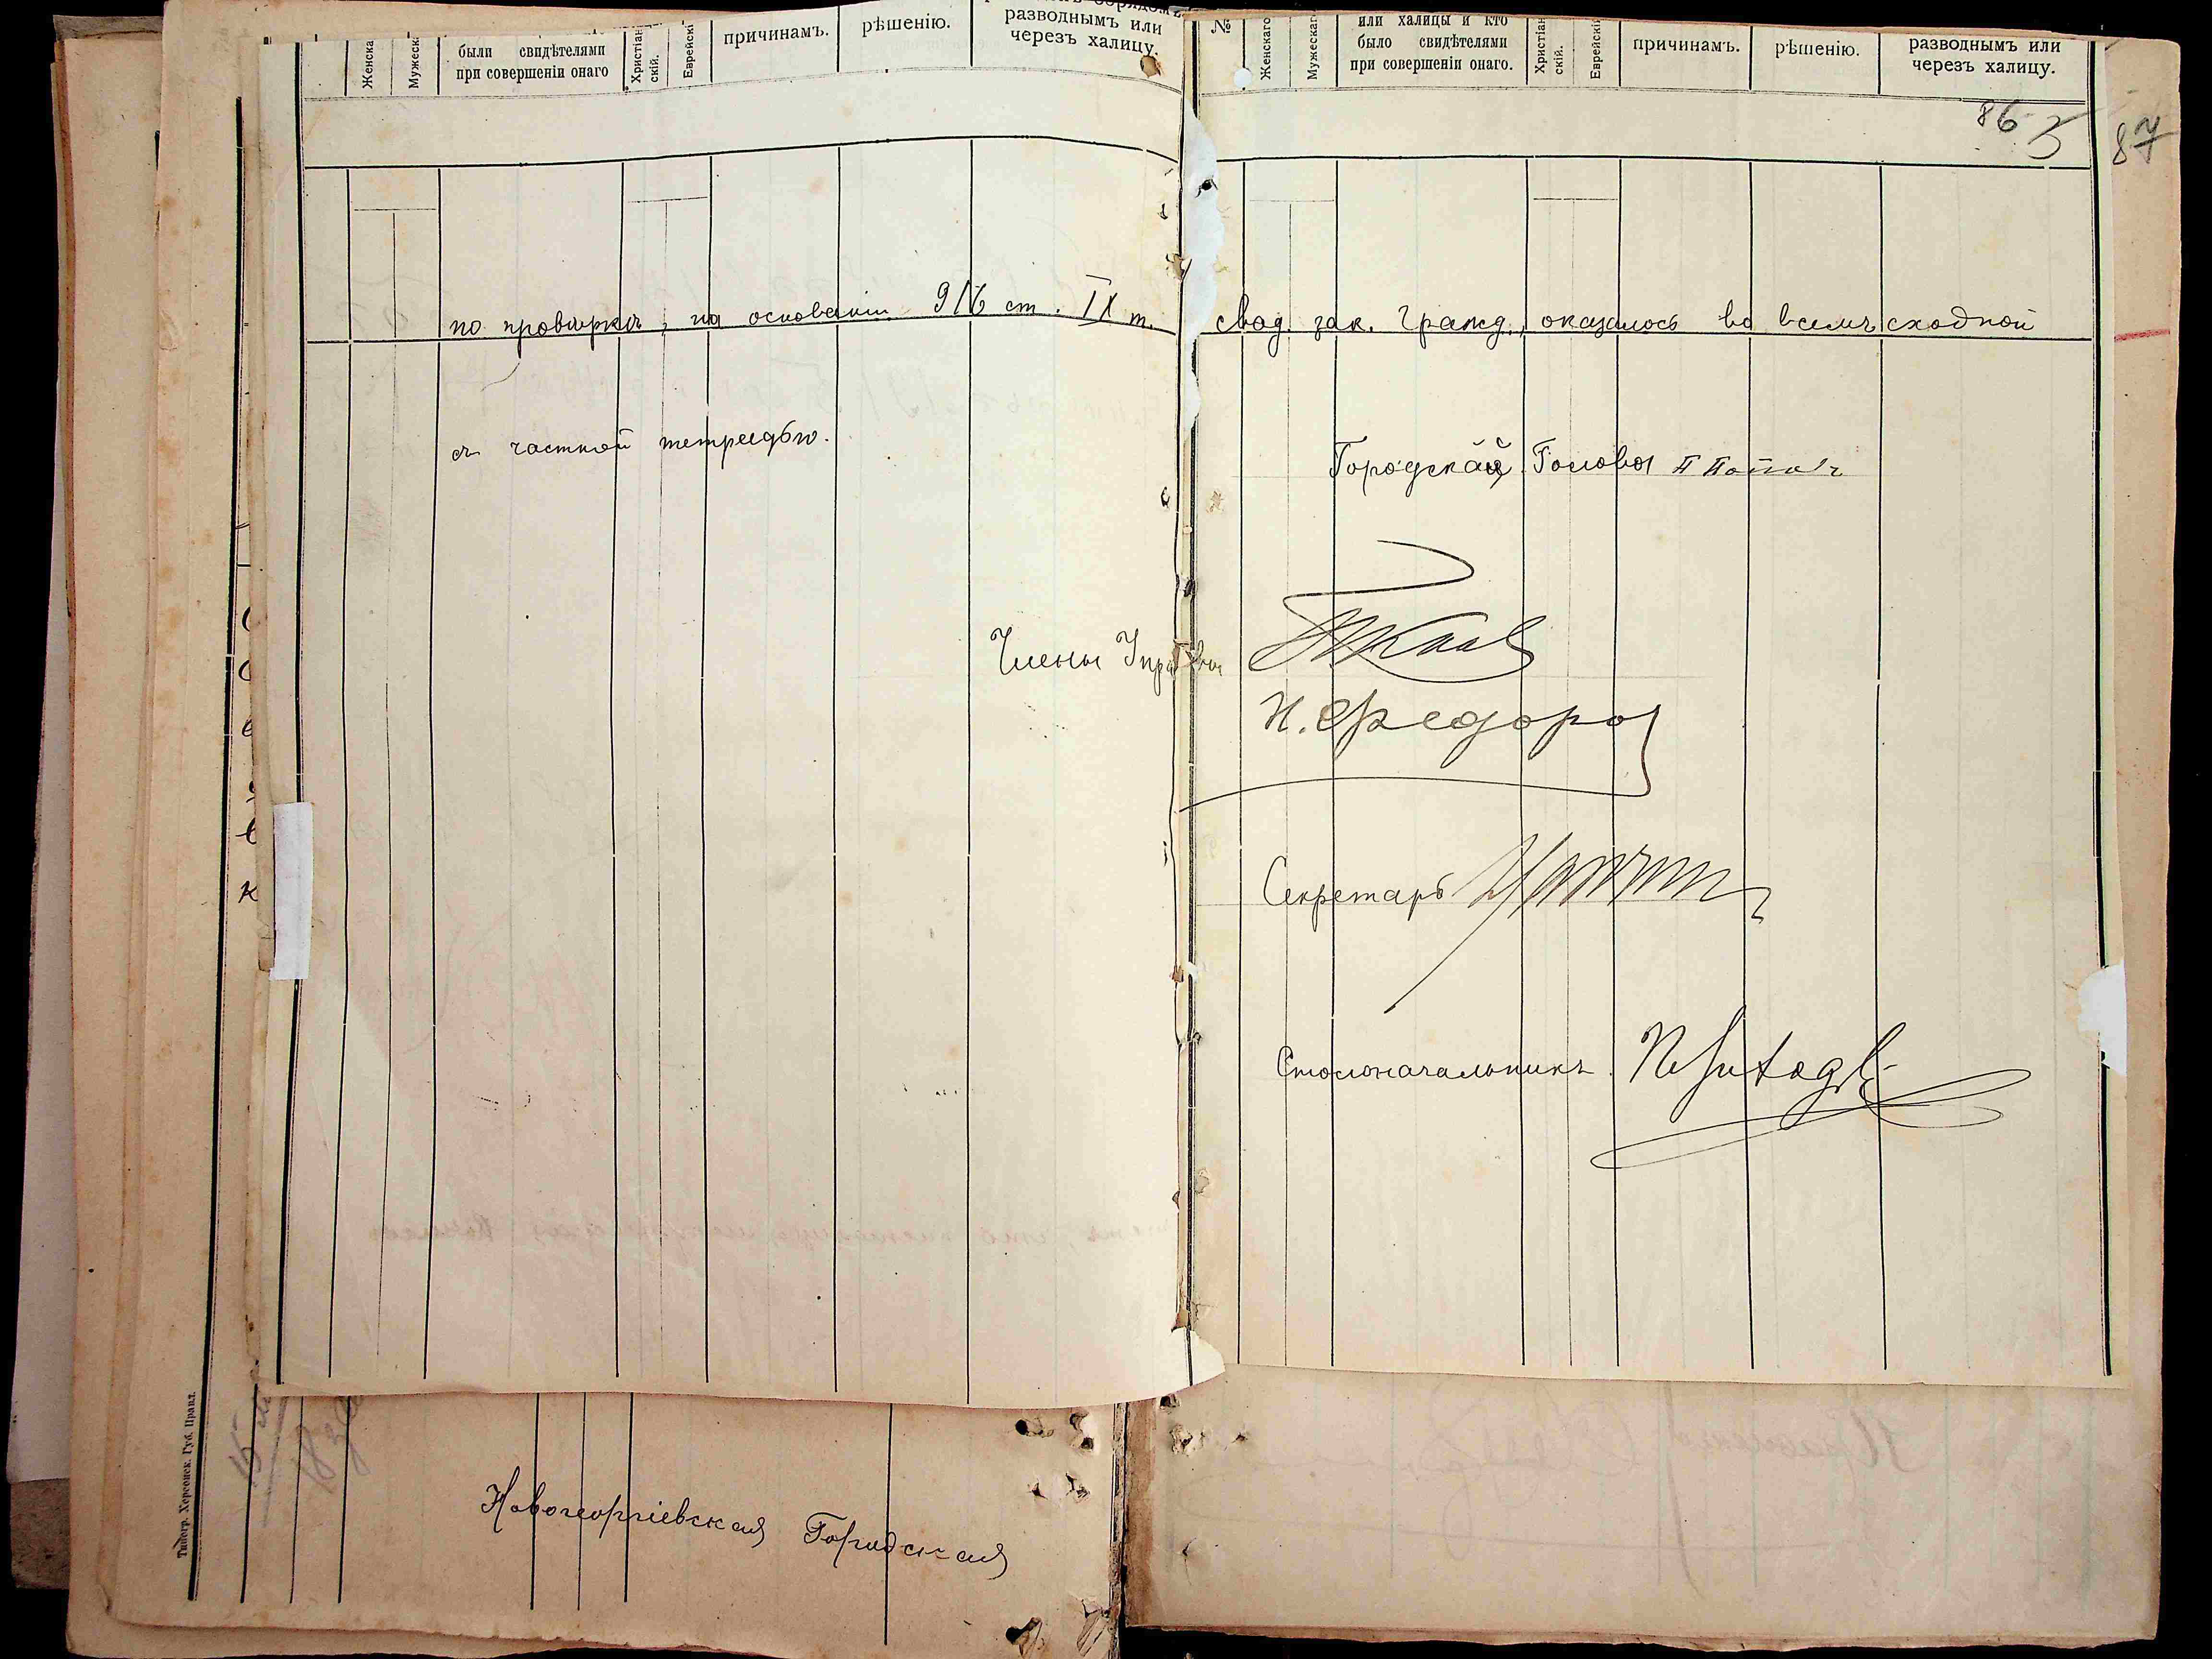 Женска
Мужеск
были свидѣтелями
при совершеніи онаго
Христіан
скій.
Еврейскі
причинамъ.
рѣшенію.
разводнымъ или
черезъ халицу.
№
Женскаго
Мужескаго
или халицы и кто
было свидѣтелями
при совершеніи онаго.
Христіан
скій.
Еврейскій
причинамъ.
рѣшенію.
разводнымъ или
черезъ халицу.
86
87
по провѣркѣ, на основаніи 916 ст. IX т. Свод. зак. Гражд., оказалось во всемъ сходной
съ частной тетрадью.
Городской Голова
Члены Управы
Н. Федоро
Секретарь
Столоначальникъ
Новогеоргіевская Городская
Типогр. Херсонск. Губ. Правл.